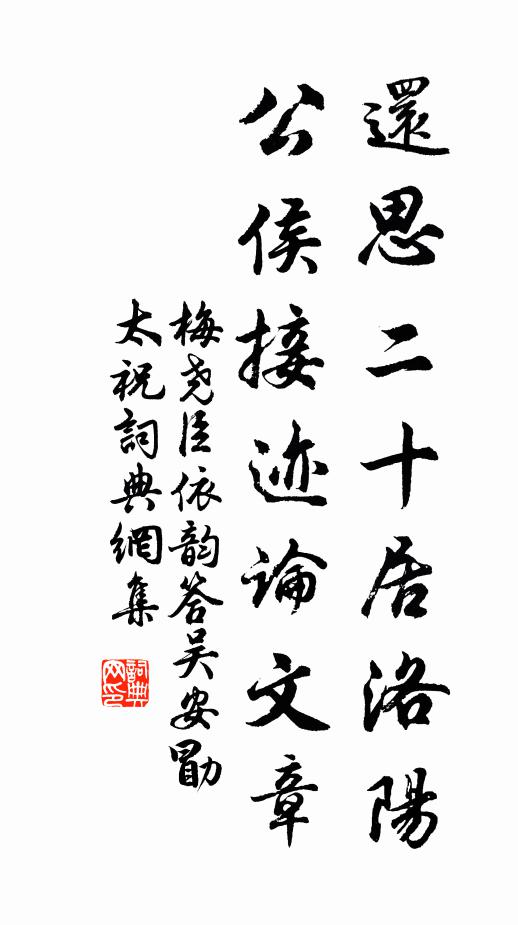 還思二十居洛陽
公侯接迹論文章
梅尧臣依韵答吴安勖
太祝詞典網集
詞典网印